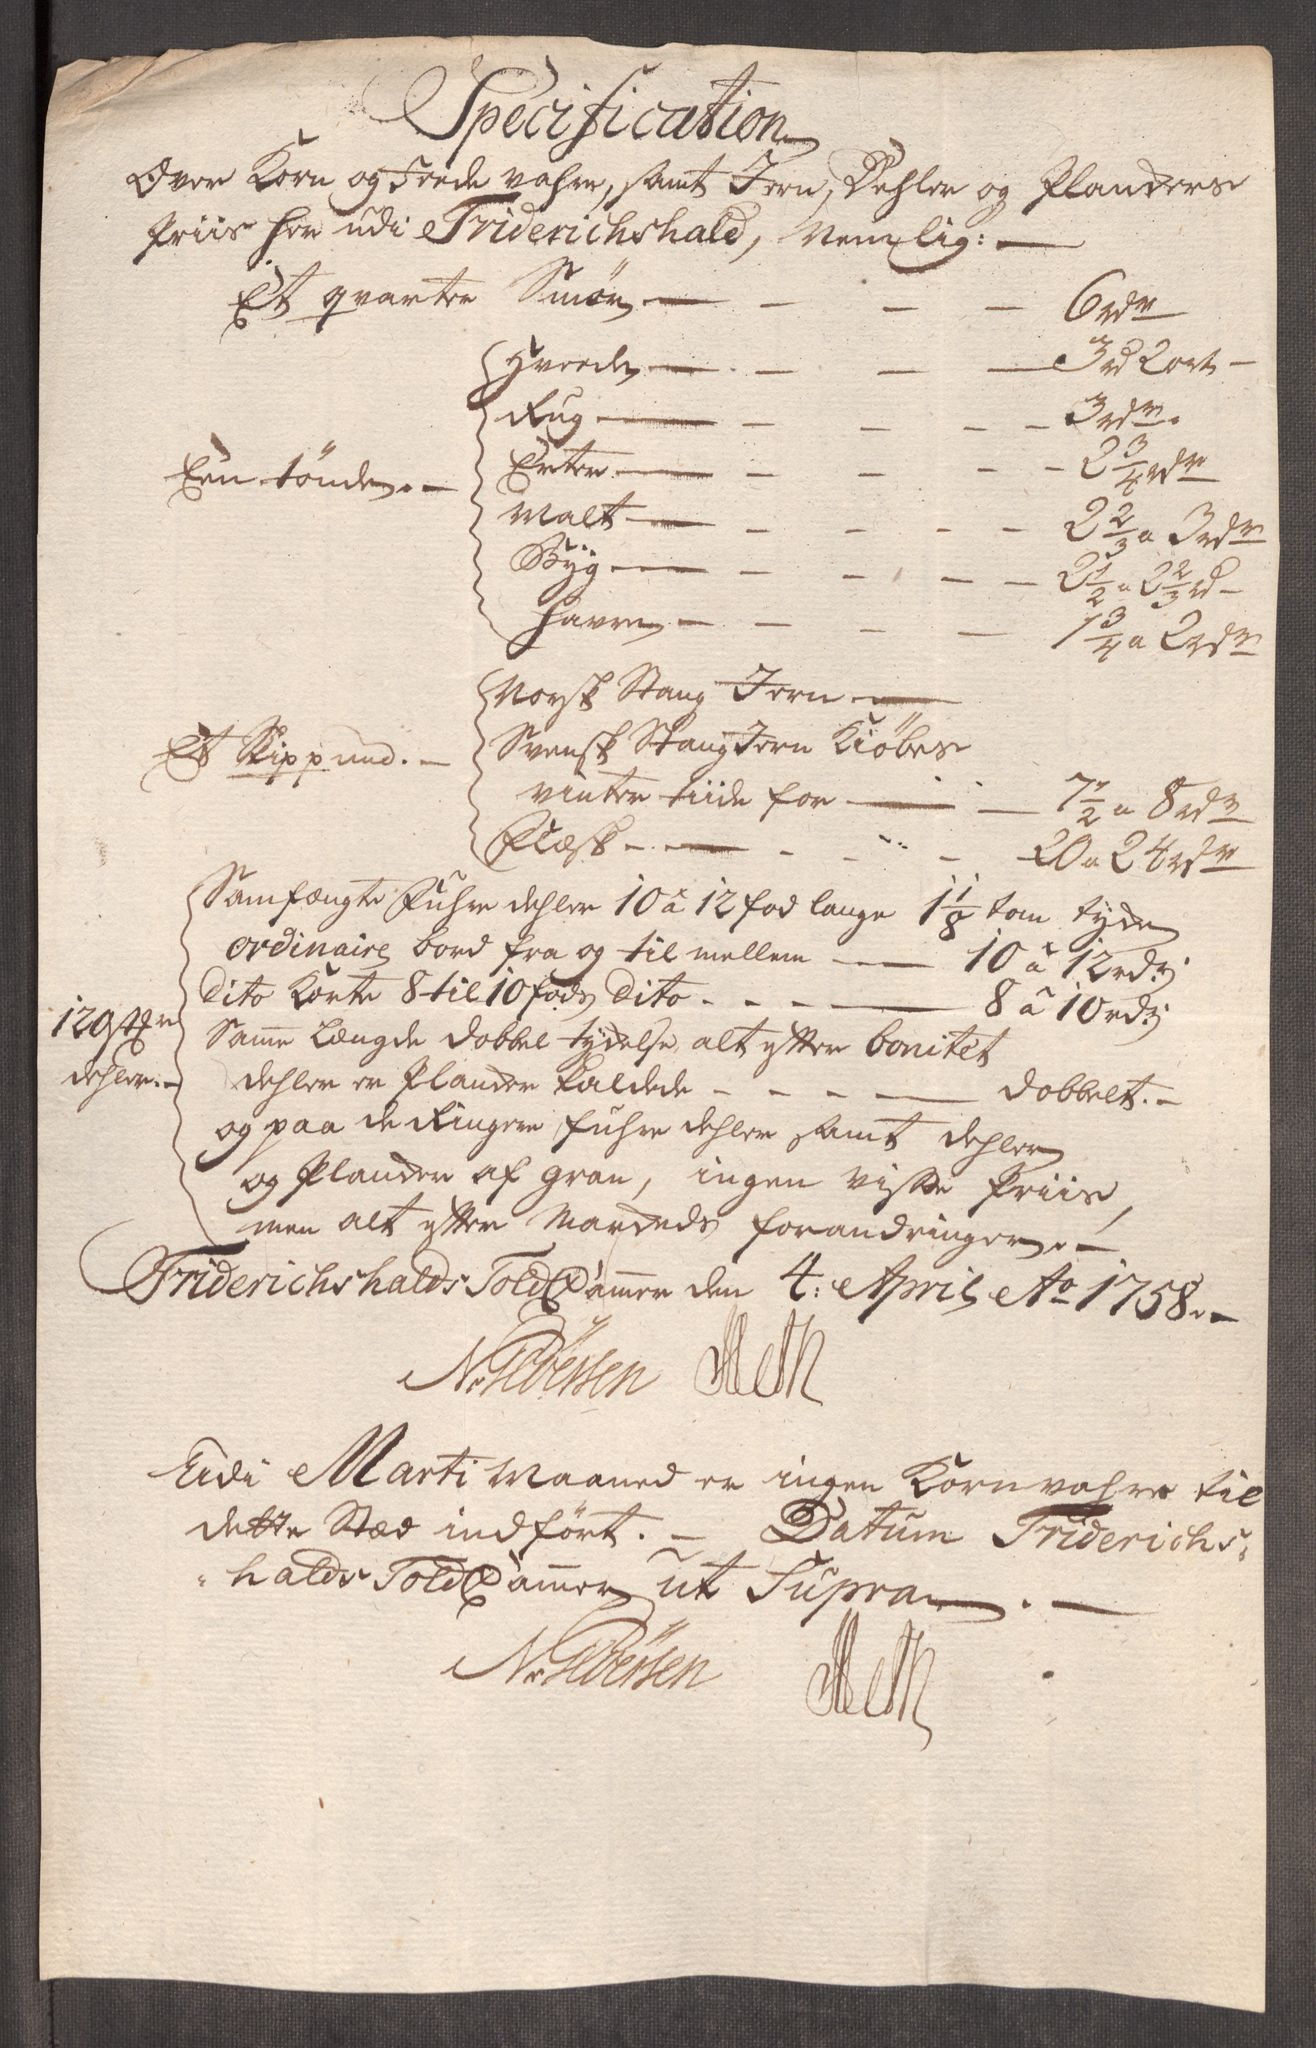 Specification
Over Korn og Feede vahre, samt Jern, Dehler og Planckers
Priis her udi Friderichshald, Nemlig: —
Et qvarter Smör — — — — 6 rdr
Hveede — — — — 3 rd 2 ort —
Rug — — — — 3 rdr.
Een tönde. — Erter — — — — 2 3/4 rdr
Malt — — — — 2 2/3 a 3 rdr
Byg — — — — 2 1/2 a 2 2/3 rd —
Havre — — — — 1 3/4 a 2 rdr
Norsk Stang Jern —
Et Skippund. — Svensk Stang Jern Kiöbes
vinter tiide for — — 7 1/2 a 8 rdr
Flæsk — — — — 20 a 24 rdr
Samfængte Fuhre dehler 10 a 12 fod lange 1 1/8 tom tyde
ordinaire bord fra og til mellem — 10 a 12 rd
Dito Korte 8 til 10 fods Dito — — — 8 a 10 rd
120 St
dehler. — Samme Længde dobbel tydelse alt efter bonitet
dehler er Plancker kaldede — — — — dobbelt. —
og paa de Ringere fuhre dehler samt dehler
og Plancker af gran, ingen visse Priis,
men alt efter Markeds forandringer. —
Friderichshalds Told Cammer den 4: April Ao 1758. —
N: Pedersen
Udi Marti Maaned er ingen Kornvahre til
dette Stæd indfört. — Datum Friderichs-
halds Told Cammer ut Supra. —
N: Pedersen